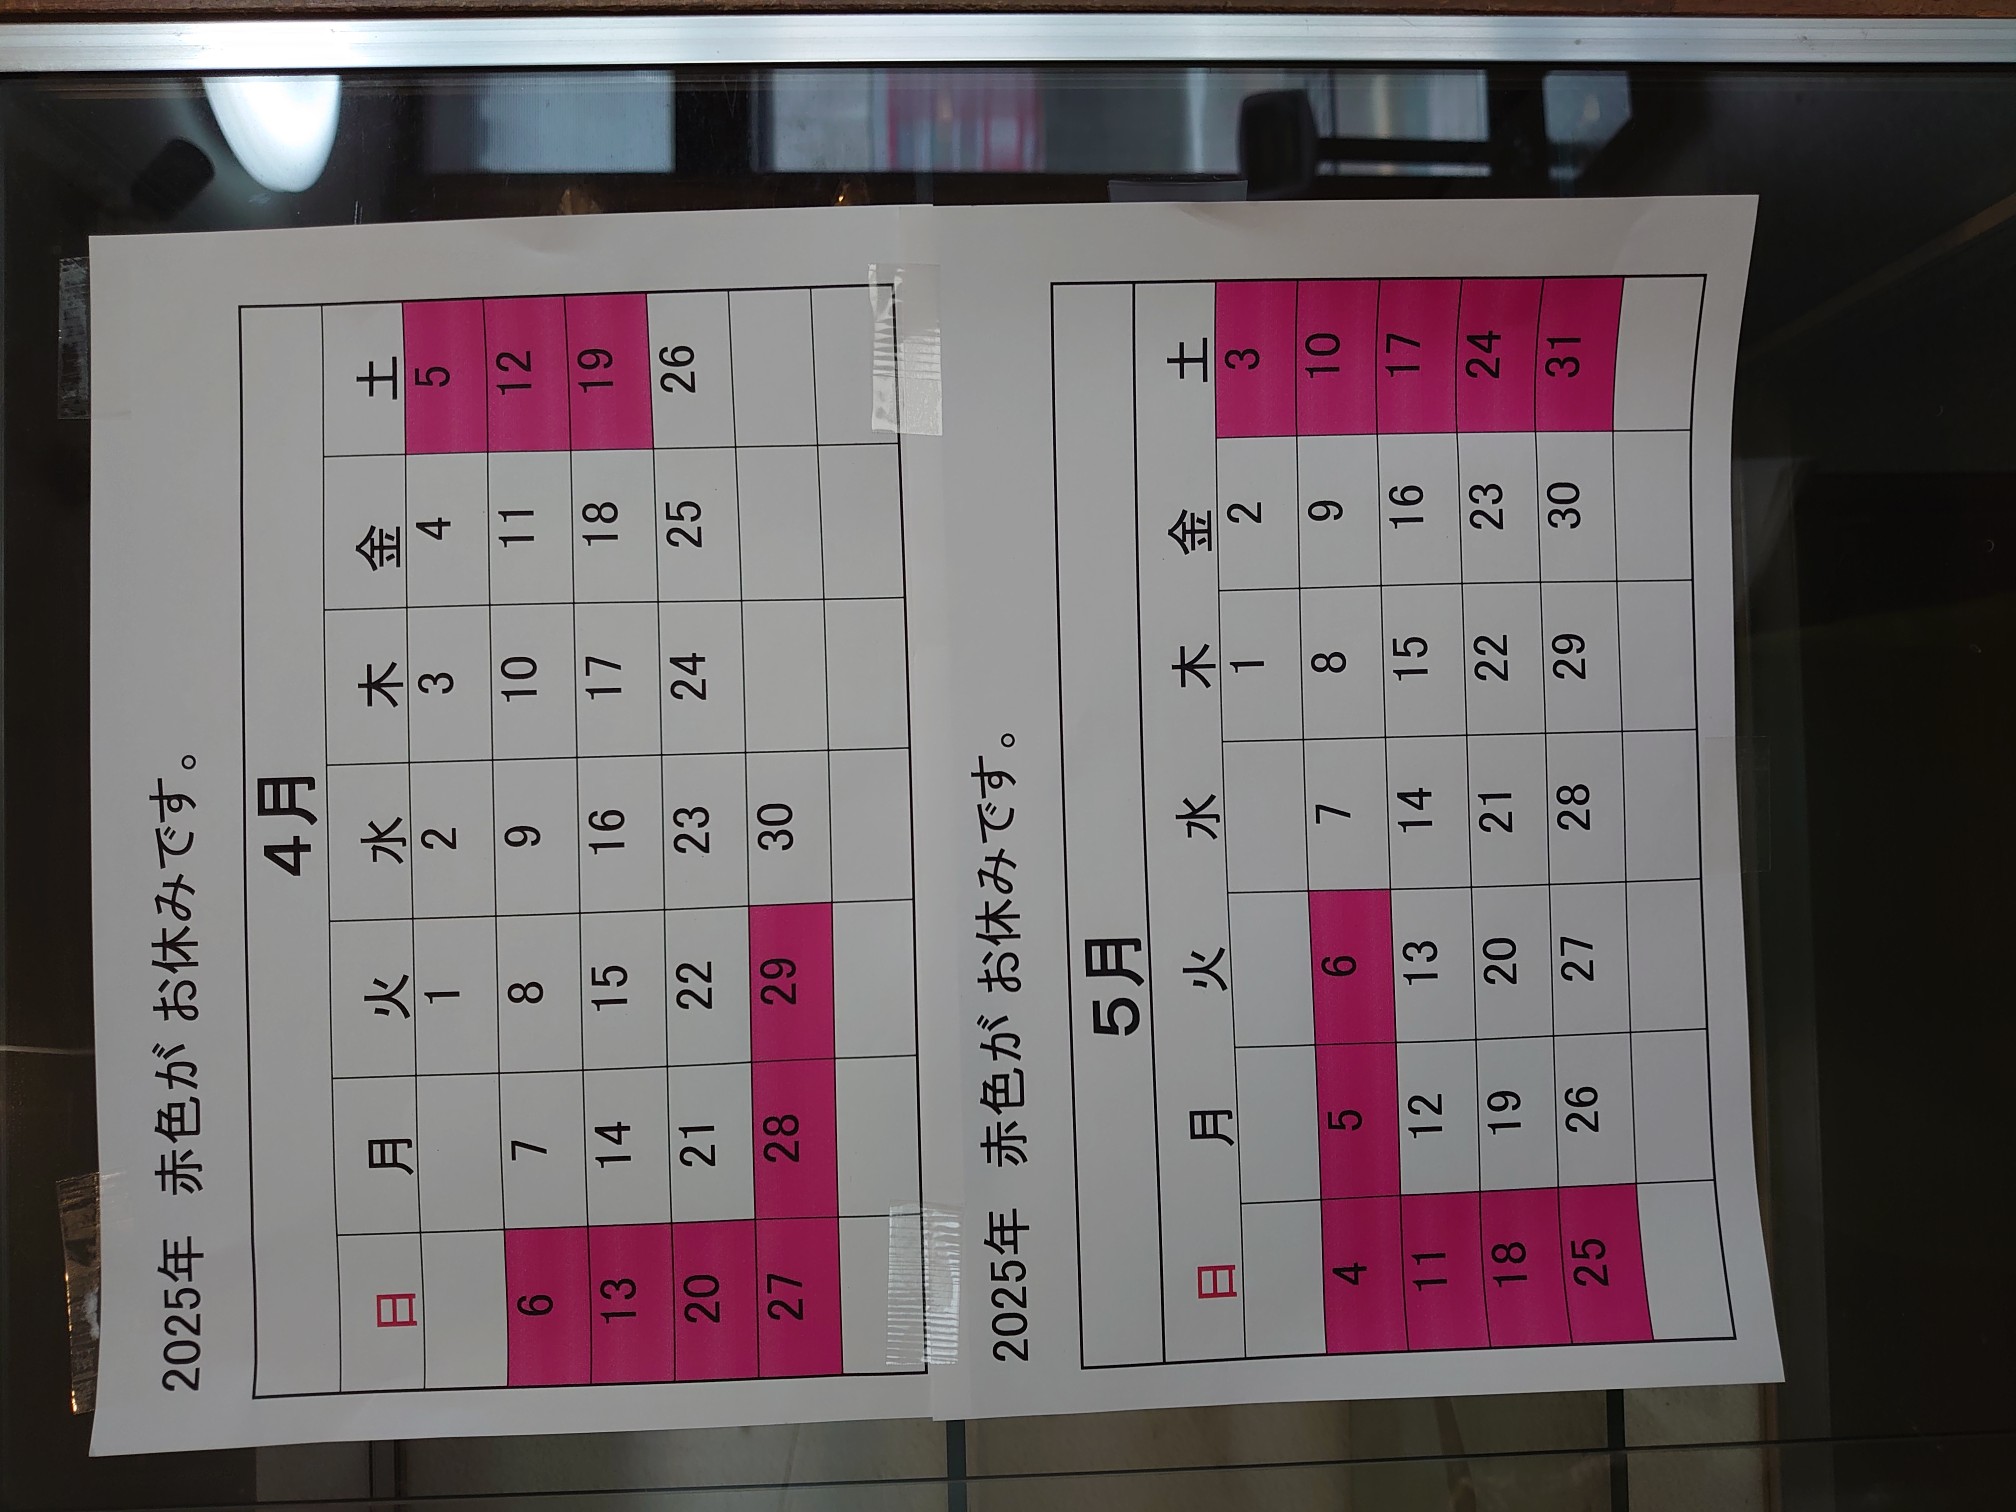 2025年 赤色が お休みです。
4月
日 月 火 水 木 金 土
1 2 3 4 5
6 7 8 9 10 11 12
13 14 15 16 17 18 19
20 21 22 23 24 25 26
27 28 29 30
2025年 赤色が お休みです。
5月
日 月 火 水 木 金 土
1 2 3
4 5 6 7 8 9 10
11 12 13 14 15 16 17
18 19 20 21 22 23 24
25 26 27 28 29 30 31